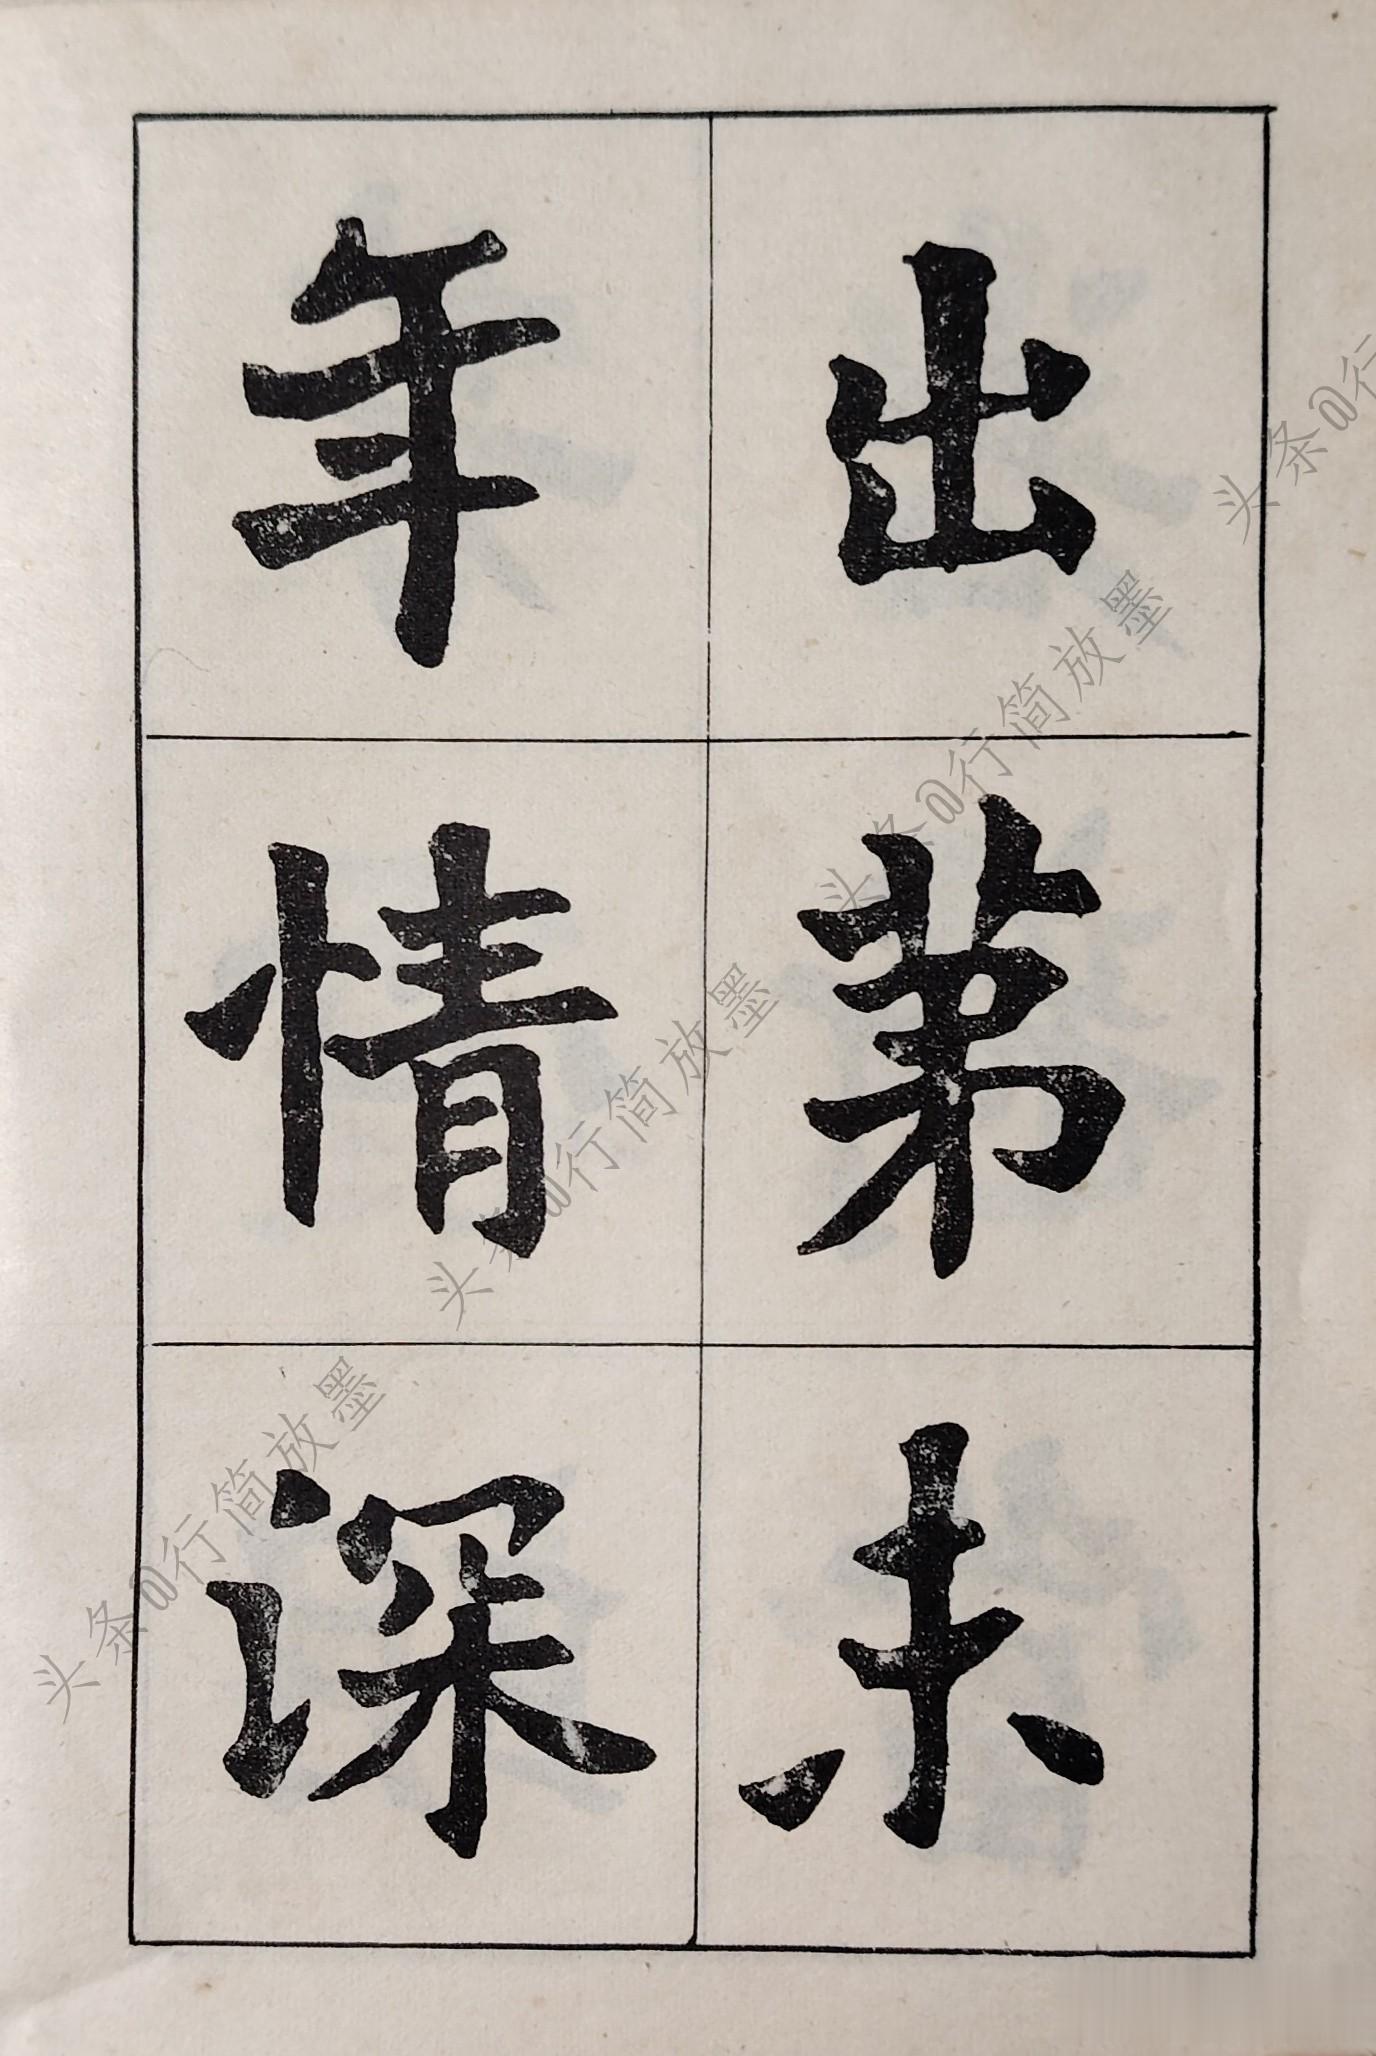 出第未
年情深
头条@行简放墨
头条@行简放墨
头条@行简放墨
头条@行